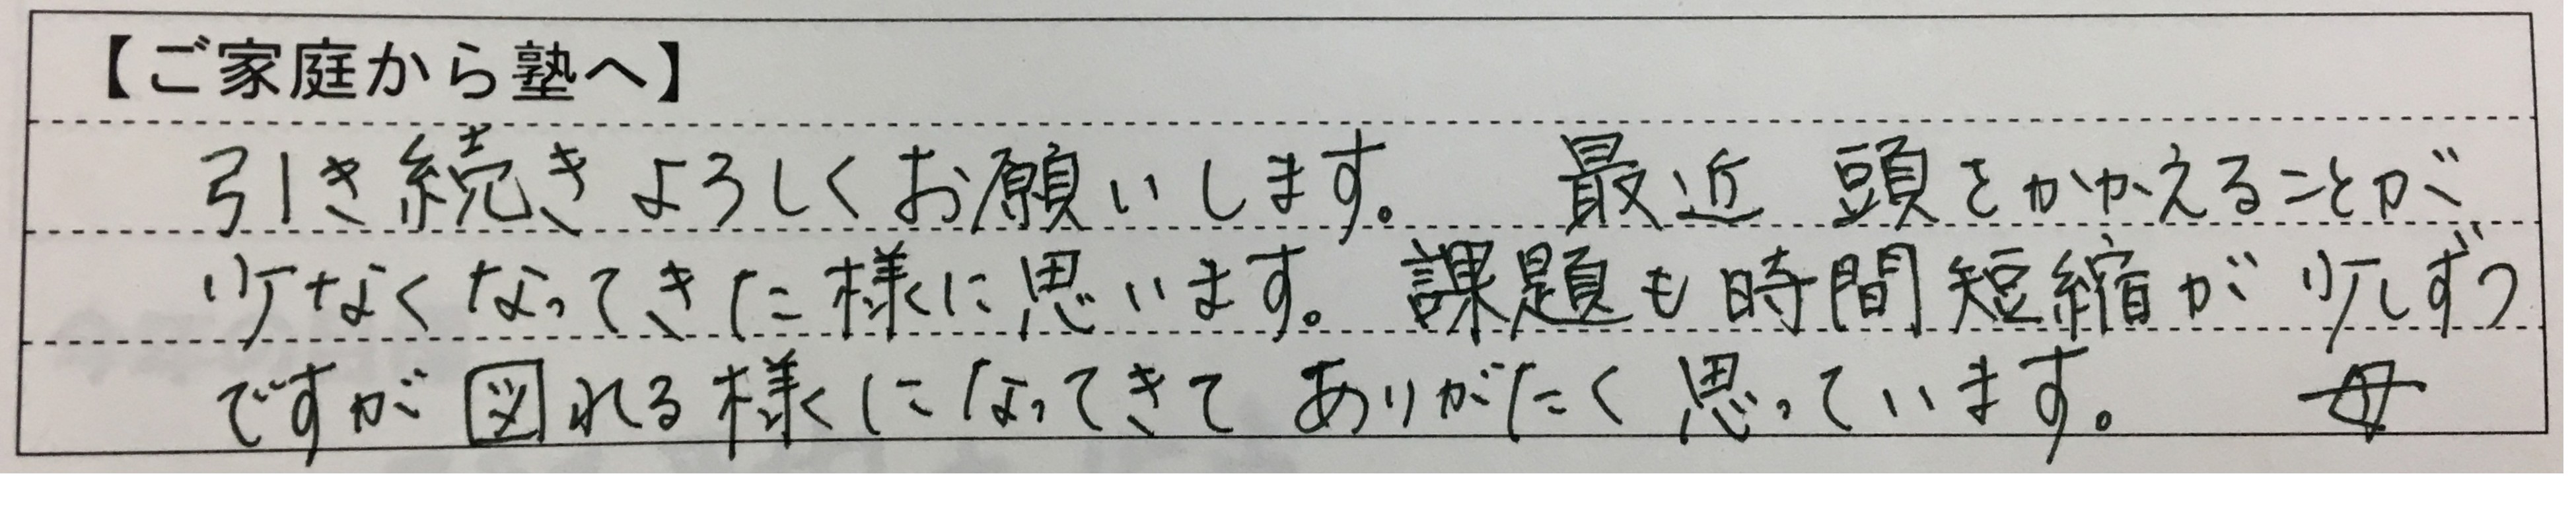 【ご家庭から塾へ】
引き続きよろしくお願いします。 最近 頭をかかえることが
少なくなってきた様に思います。課題も時間短縮が少しずつ
ですが図れる様になってきて ありがたく思っています。 母